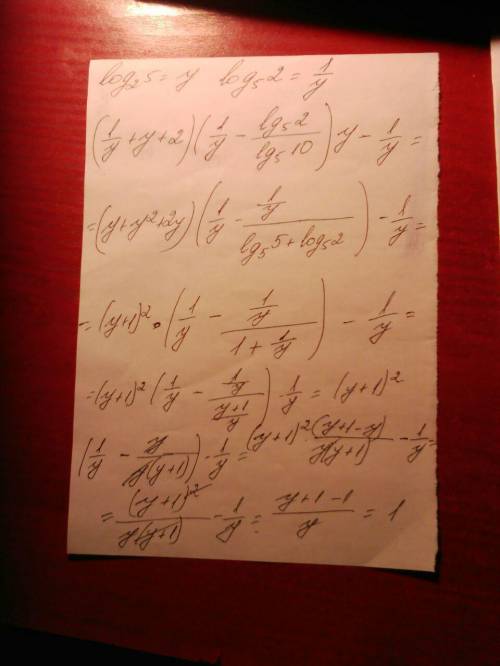 log₂5 = y log₅2 = 1/y
(1/y + y + 2)(1/y - lg₅2/lg₅10) y - 1/y =
= (y + y² + 2y)(1/y - (1/y)/(lg₅5 + log₅2)) - 1/y =
= (y+1)² · (1/y - (1/y)/(1 + 1/y)) - 1/y =
= (y+1)² (1/y - (1/y)/((y+1)/y)) - 1/y = (y+1)²
(1/y - y/(y(y+1))) - 1/y = (y+1)² (y+1-y)/(y(y+1)) - 1/y =
= (y+1)²/(y(y+1)) - 1/y = (y+1-1)/y = 1